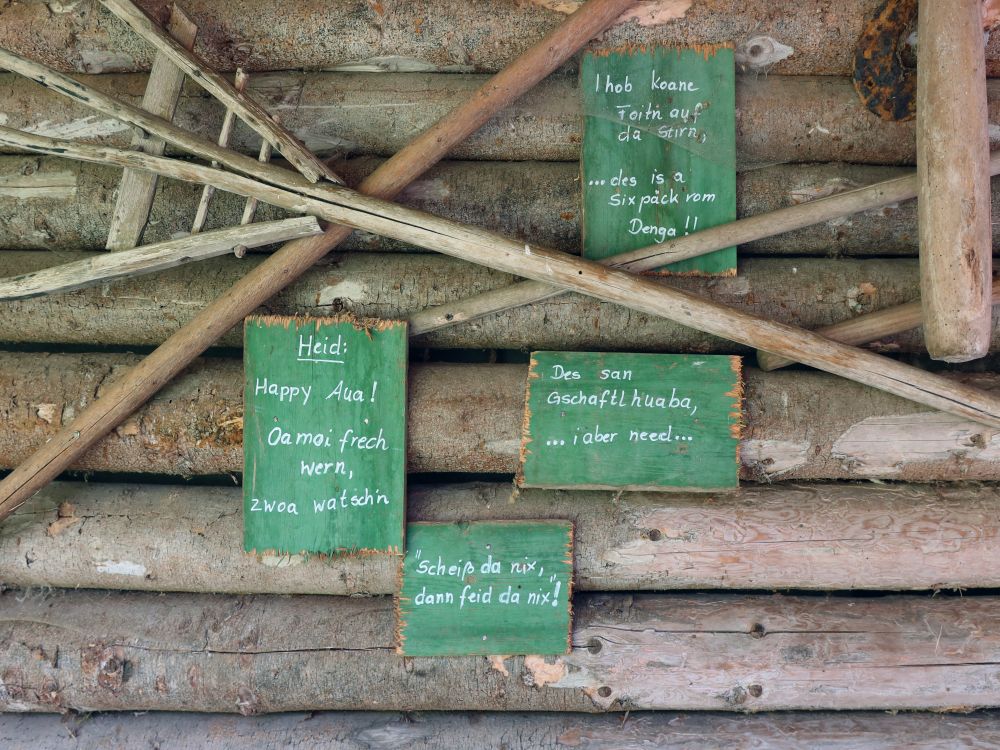 I hob koane
Foitn auf
da Stirn,
...des is a
Sixpack vom
Denga!!
Heid:
Happy Aua!
Oamoi frech
wern,
zwoa watsch'n
Des san
Gschaftlhuaba,
...i aber need...
"Scheiß da nix,
dann feid da nix"!